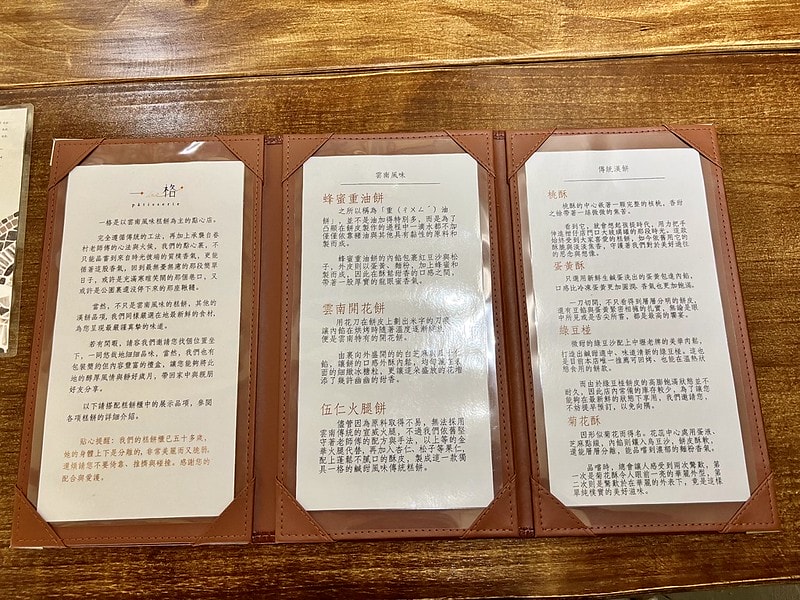 一格
pâtisserie
一格是以雲南風味糕餅為主的點心店。
完全遵循傳統的工法、再加上承襲自眷
村老師傅的心法與火候，我們的點心裏，不
只能品嘗到來自時光後端的質樸香氣，更能
循著這股香氣，回到最無憂無慮的那段簡單
日子，或許是充滿寒喧笑鬧的那個巷口，又
或許是公園裏還沒停下來的那座鞦韆。
當然，不只是雲南風味的糕餅，其他的
漢餅品項，我們同樣嚴選在地最新鮮的食材，
為您呈現最嚴謹真摯的味道。
若有閒暇，請容我們邀請您找個位置坐
下，一同悠哉地細細品味，當然，我們也有
包裝簡約但內容豐富的禮盒，讓您能夠將此
地的醇厚風情與靜好歲月，帶回家中與親朋
好友分享。
以下請搭配糕餅櫃中的展示品項，參閱
各項糕餅的詳細介紹。
貼心提醒：我們的糕餅櫃已五十多歲，
她的身體上下是分離的，非常美麗而又脆弱。
還煩請您不要倚靠、推擠與碰撞。感謝您的
配合與愛護。
雲南風味
蜂蜜重油餅
之所以稱為「重（ㄔㄨㄥˊ）油
餅」，並不是油加得特別多，而是為了
凸顯在餅皮製作的過程中一滴水都不加
僅僅依靠豬油與其他具有黏性的原料和
製而成。
蜂蜜重油餅的內餡包裹紅豆沙與松
子，外皮則以蛋黃、麵粉，加上蜂蜜和
製而成，因此在酥鬆甜香的口感之間，
帶著一股厚實的龍眼蜜香氣。
雲南開花餅
用花刀在餅皮上劃出米字的刀痕，
讓內餡在烘烤時隨著溫度逐漸綻放，
便是雲南特有的開花餅。
由裏向外盛開的的白芝麻
餡，讓餅的口感外酥內鬆，均勻
密的細緻冰糖粒，更讓這朵盛放的花增
添了幾許幽幽的甜香。
伍仁火腿餅
儘管因為原料取得不易，無法採用
雲南傳統的宣威火腿，不過我們依舊堅
守著老師傅的配方與手法，以上等的金
華火腿代替，再加入杏仁、松子等果仁，
配上蓬鬆不膩口的酥皮，製成這一款獨
具一格的鹹甜風味傳統糕餅。
傳統漢餅
桃酥
桃酥的中心嵌著一顆完整的核桃，香甜
之餘帶著一絲微微的焦苦。
看到它，就會想起孩提時代，用力把手
伸進柑仔店門口大玻璃罐的那段時光。這款
始終受到大家喜愛的糕餅，如今依舊用它的
酥脆與淡淡焦香，守護著我們對於美好過往
的思念與想像。
蛋黃酥
只選用新鮮生鹹蛋洗出的蛋黃包進內餡，
口感比冷凍蛋黃更加圓潤、香氣也更加飽滿。
一刀切開，不只看得到層層分明的餅皮，
還有豆餡與蛋黃緊密相擁的扎實，無論是眼
中所見或是舌尖所嘗，都是最高的饗宴。
綠豆椪
微甜的綠豆沙配上中壢老牌的美華肉鬆，
打造出鹹甜適中、味道清新的綠豆椪。這也
是目前本店唯一推薦可回烤、也能在溫熱狀
態食用的餅款。
而由於綠豆椪餅皮的高膨飽滿狀態並不
耐久，因此店內常備的庫存較少。為了讓您
能夠在最新鮮的狀態下享用，我們邀請您，
不妨提早預訂，以免向隅。
菊花酥
因形似菊花而得名。花蕊中心處用蛋液、
芝麻點綴，內餡則鑲入烏豆沙，餅皮酥軟，
還能層層分離，能品嚐到濃郁的麵粉香氣。
品嚐時，總會讓人感受到兩次驚歎，第
一次是菊花酥令人眼前一亮的華麗外型，第
二次則是驚歎於在華麗的外表下，竟是這樣
單純樸實的美好滋味。